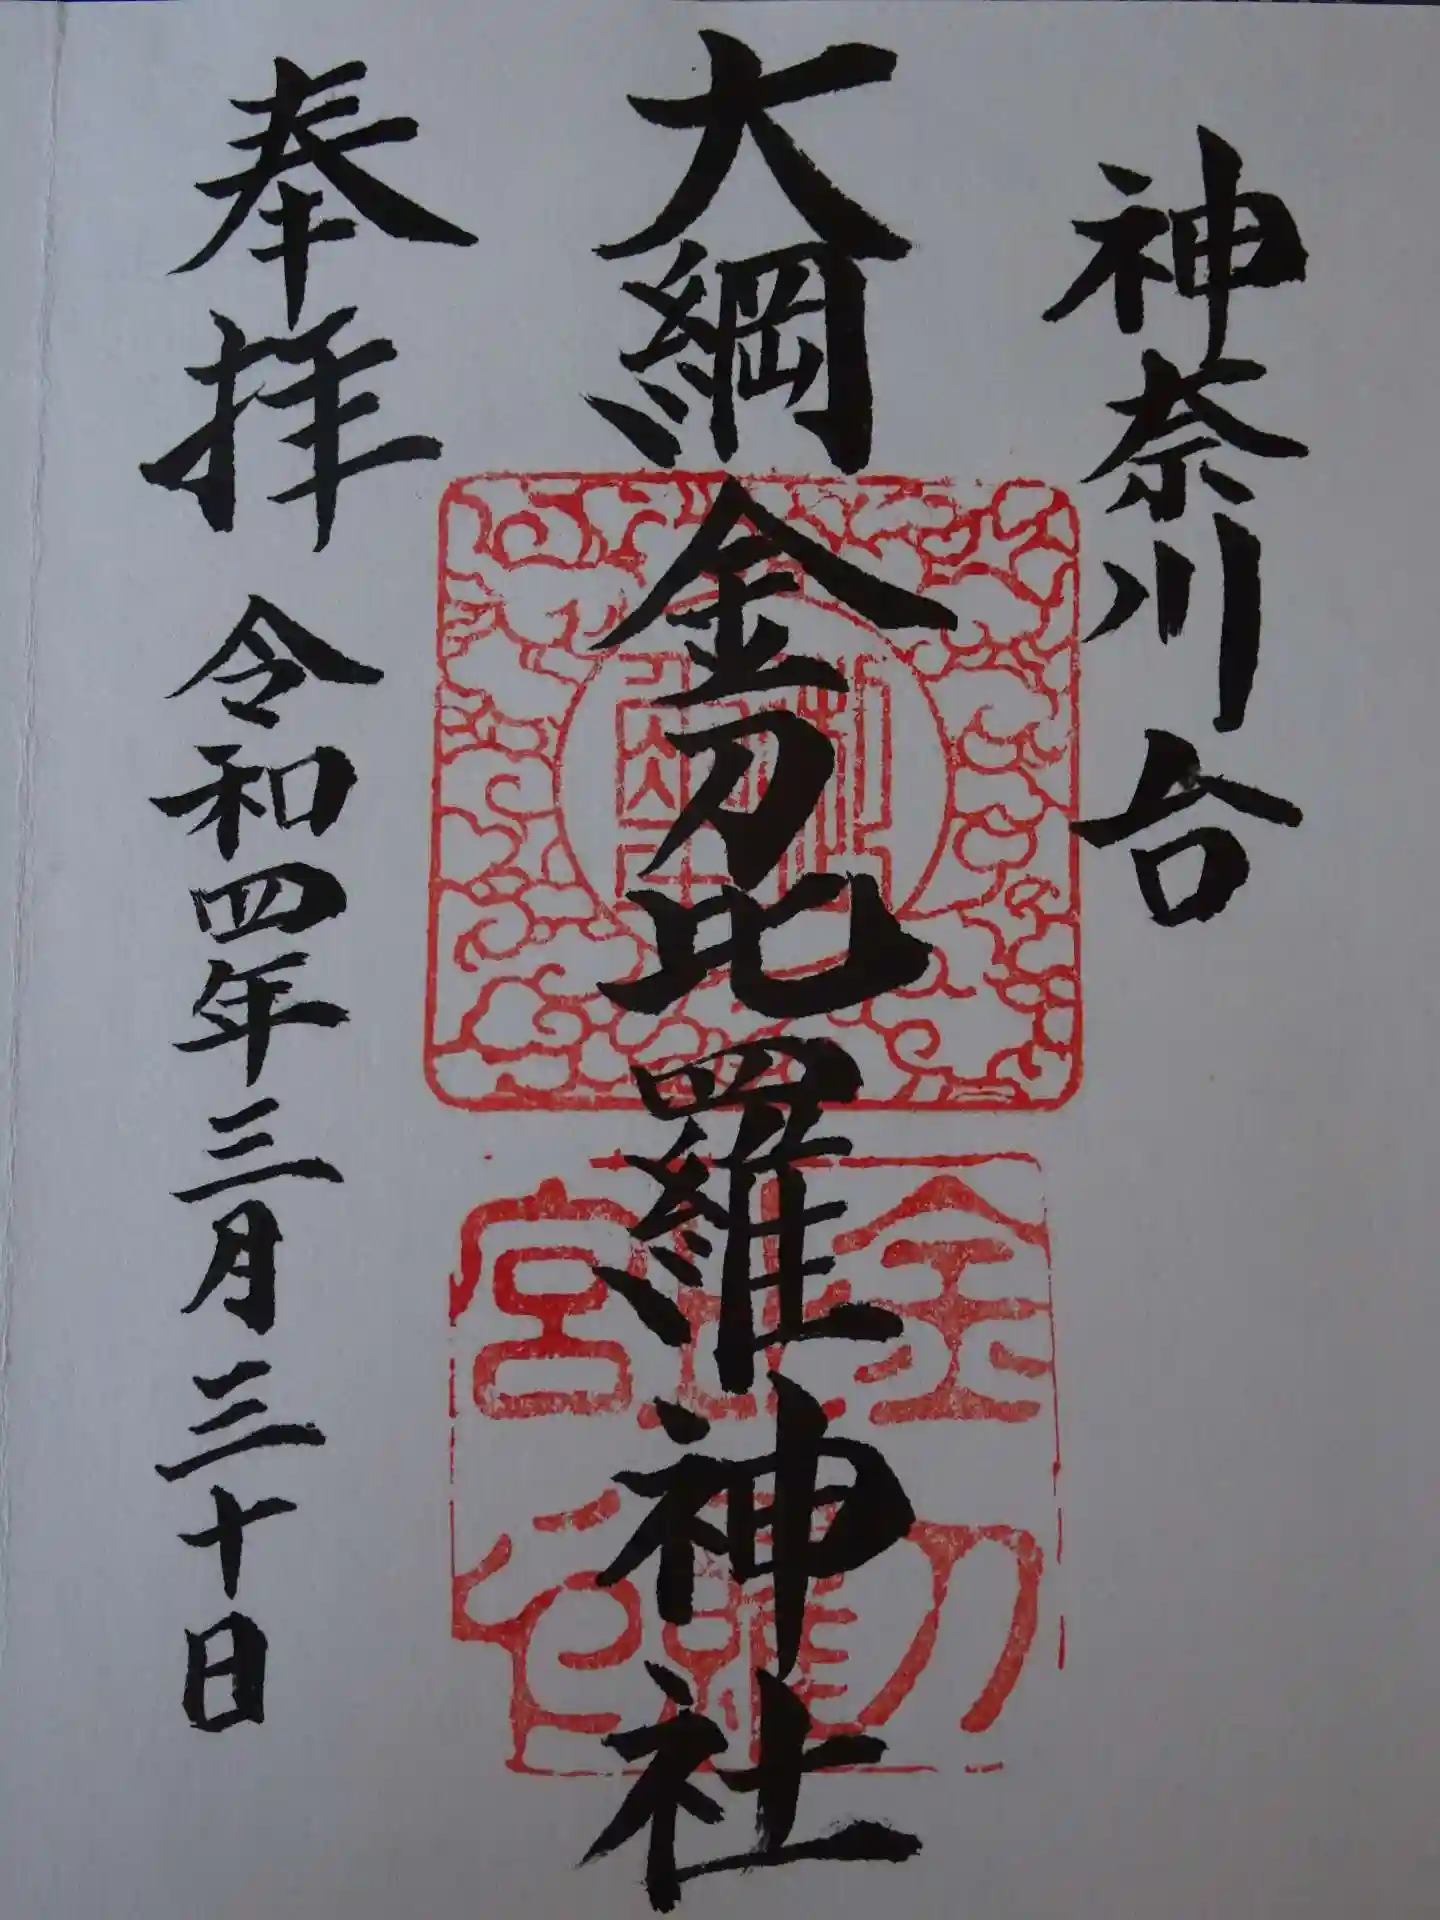 神奈川台
大綱金刀比羅神社
奉拝 令和四年三月三十日
金刀比羅宮